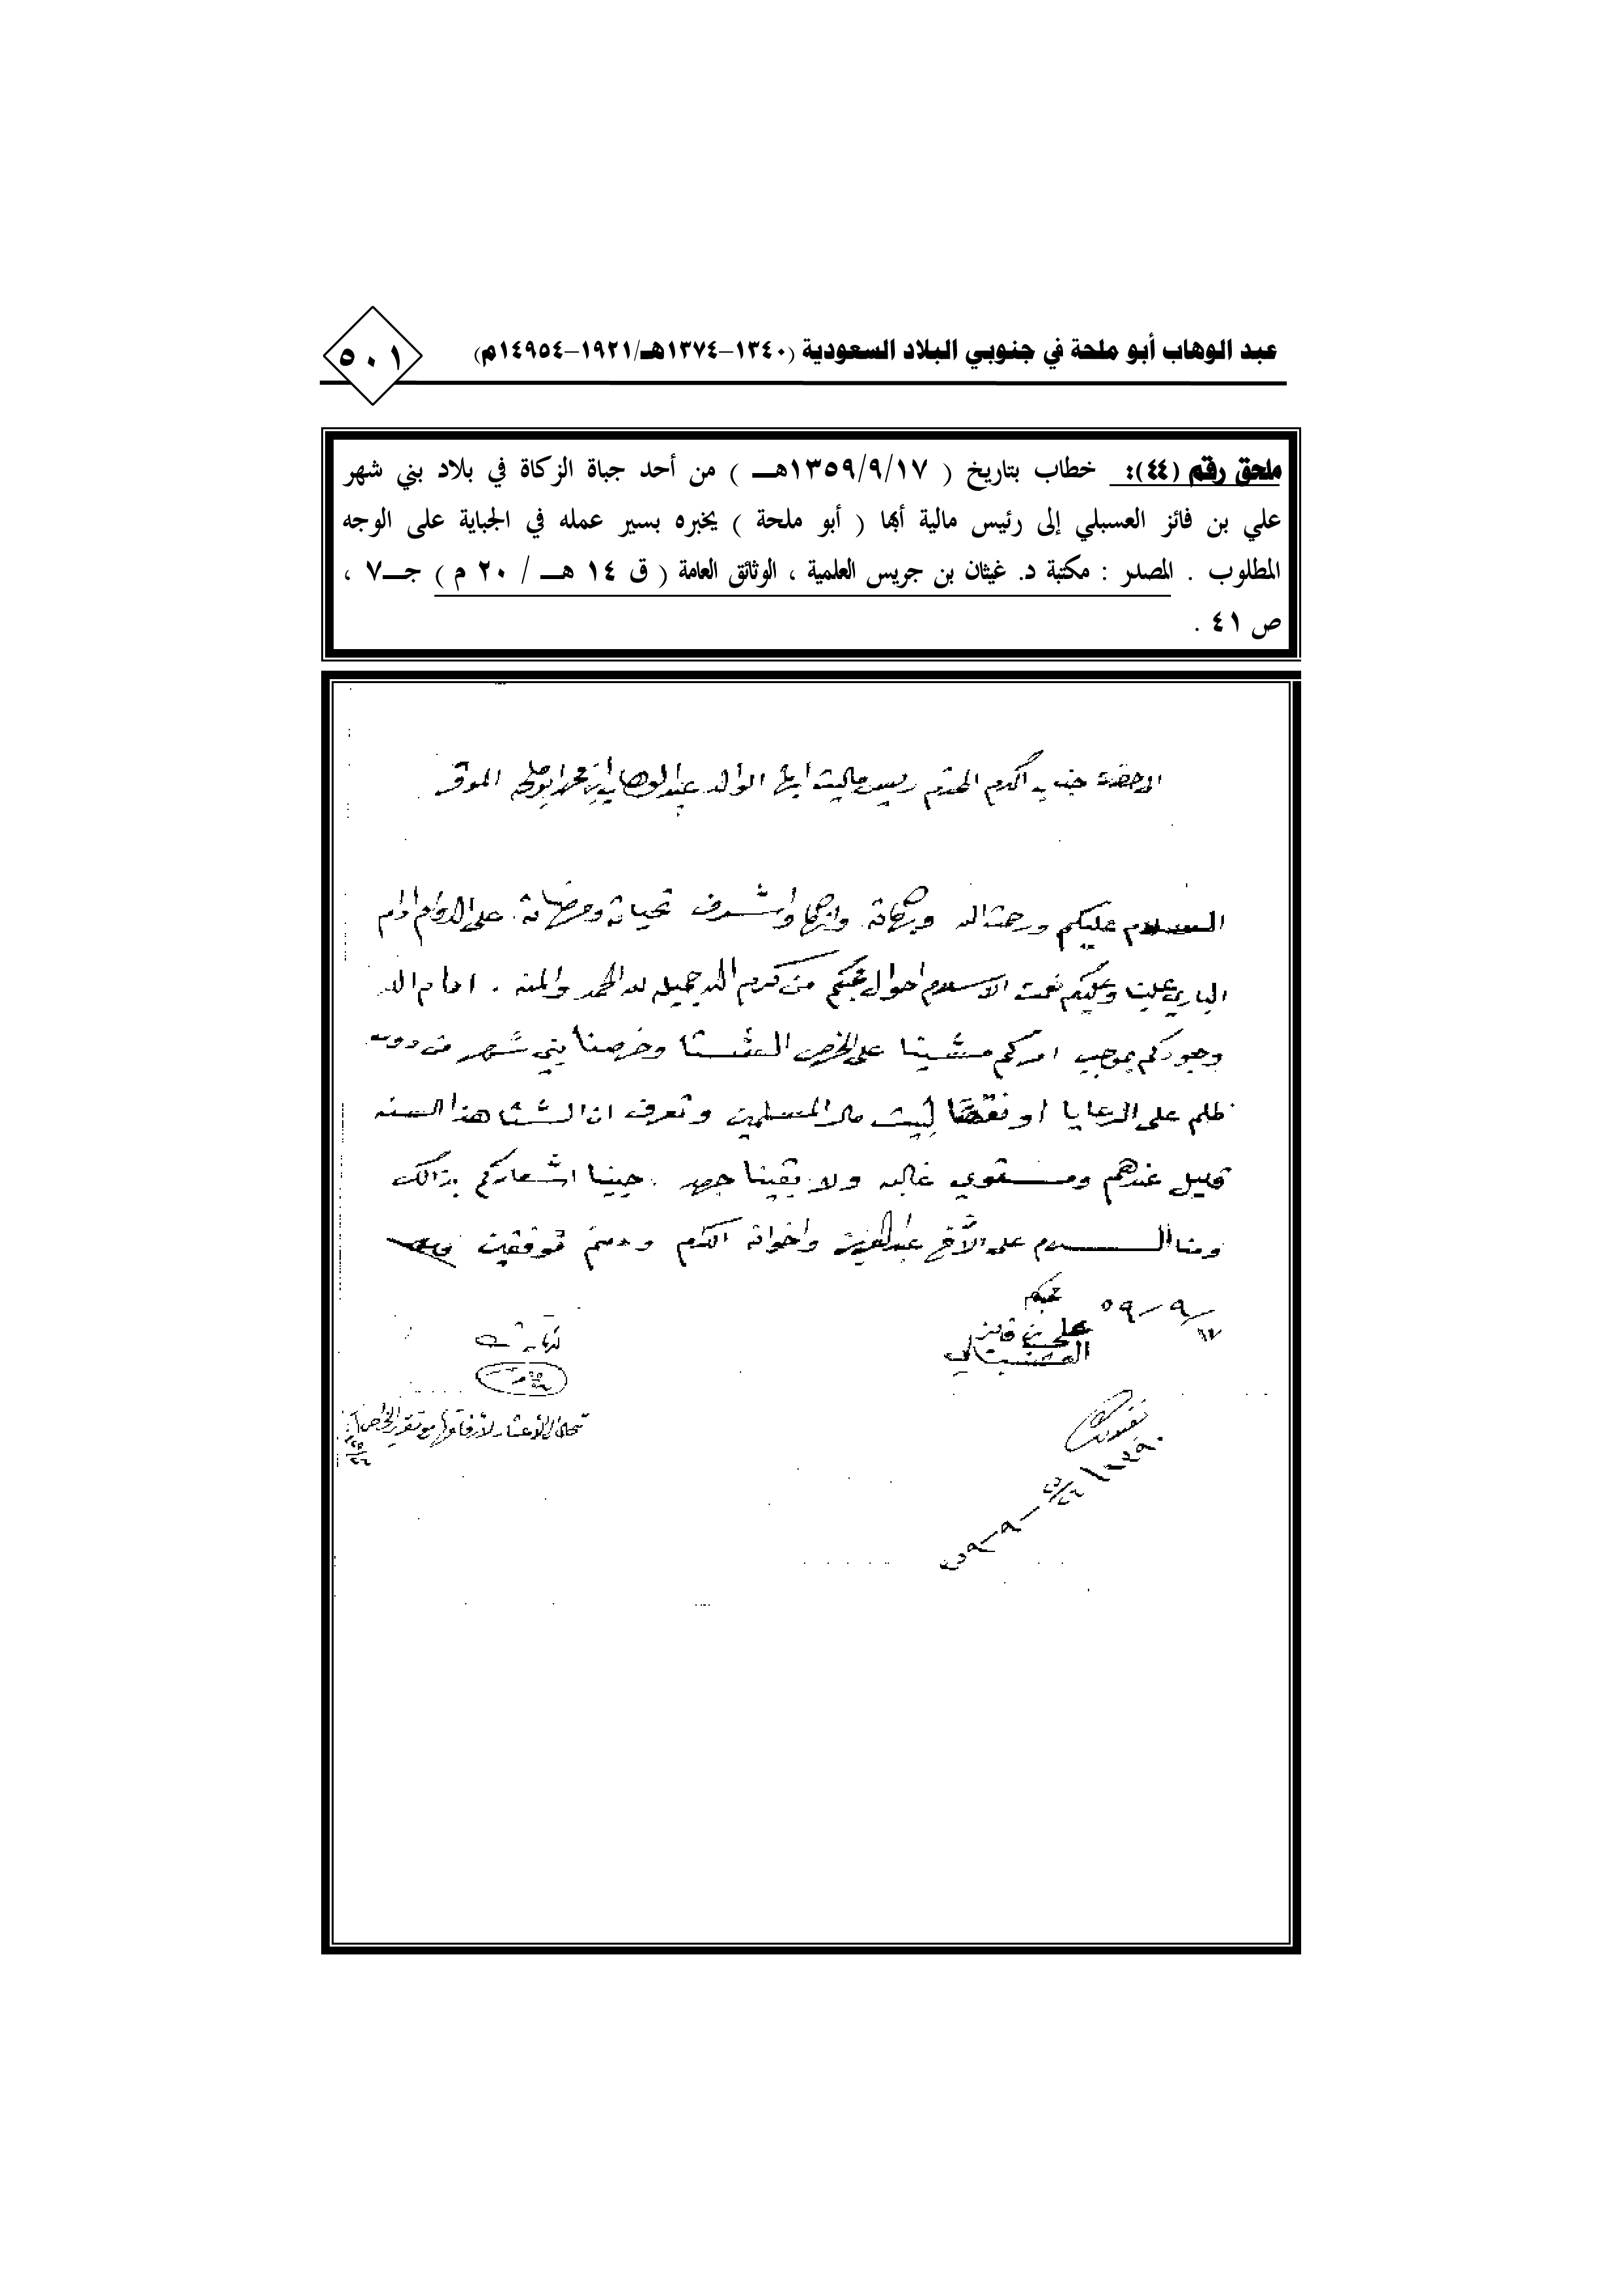 عبد الوهاب أبو ملحة في جنوبي البلاد السعودية (١٣٤٠-١٣٧٤هـ/١٩٢١-١٤٩٥٤م)
٥٠١
ملحق رقم (٤٤): خطاب بتاريخ ( ١٣٥٩/٩/١٧هـ ) من أحد جباة الزكاة في بلاد بني شهر
علي بن فائز العسبلي إلى رئيس مالية أبها ( أبو ملحة ) يخبره بسير عمله في الجباية على الوجه
المطلوب . المصدر : مكتبة د. غيثان بن جريس العلمية ، الوثائق العامة ( ق ١٤ هـ / ٢٠ م ) جـ٧ ،
ص ٤١ .
جناب الأكرم المحترم ريس مالية ابها الوالد عبدالوهاب ابن محمد ابو ملحه الموقر
السلام عليكم ورحمة الله وبركاته وازكا واشرف تحياته ومرضاته على الدوام ادام
الباري علينا وعليكم نعمت الاسلام احوال محبكم من كرم الله جميله لله الحمد والمنه . ادام الله
وجودكم بموجب امركم مشينا على الخرص الشتا وخرصنا بني شهر من دون
ظلم على الرعايا او نقصا لبيت مال المسلمين وتعرف ان الشتا هذا السنه
قليل عندهم ومستوي غالبه ولا بقينا جهد . حبينا اشعاركم بذالك
ومنا السلام على الأخ عبدالعزيز واخوانه الكرم ودمتم توفقين
محبكم
١٧-٩-٥٩
علي بن فايز
العسبلي
٥٩-٩-